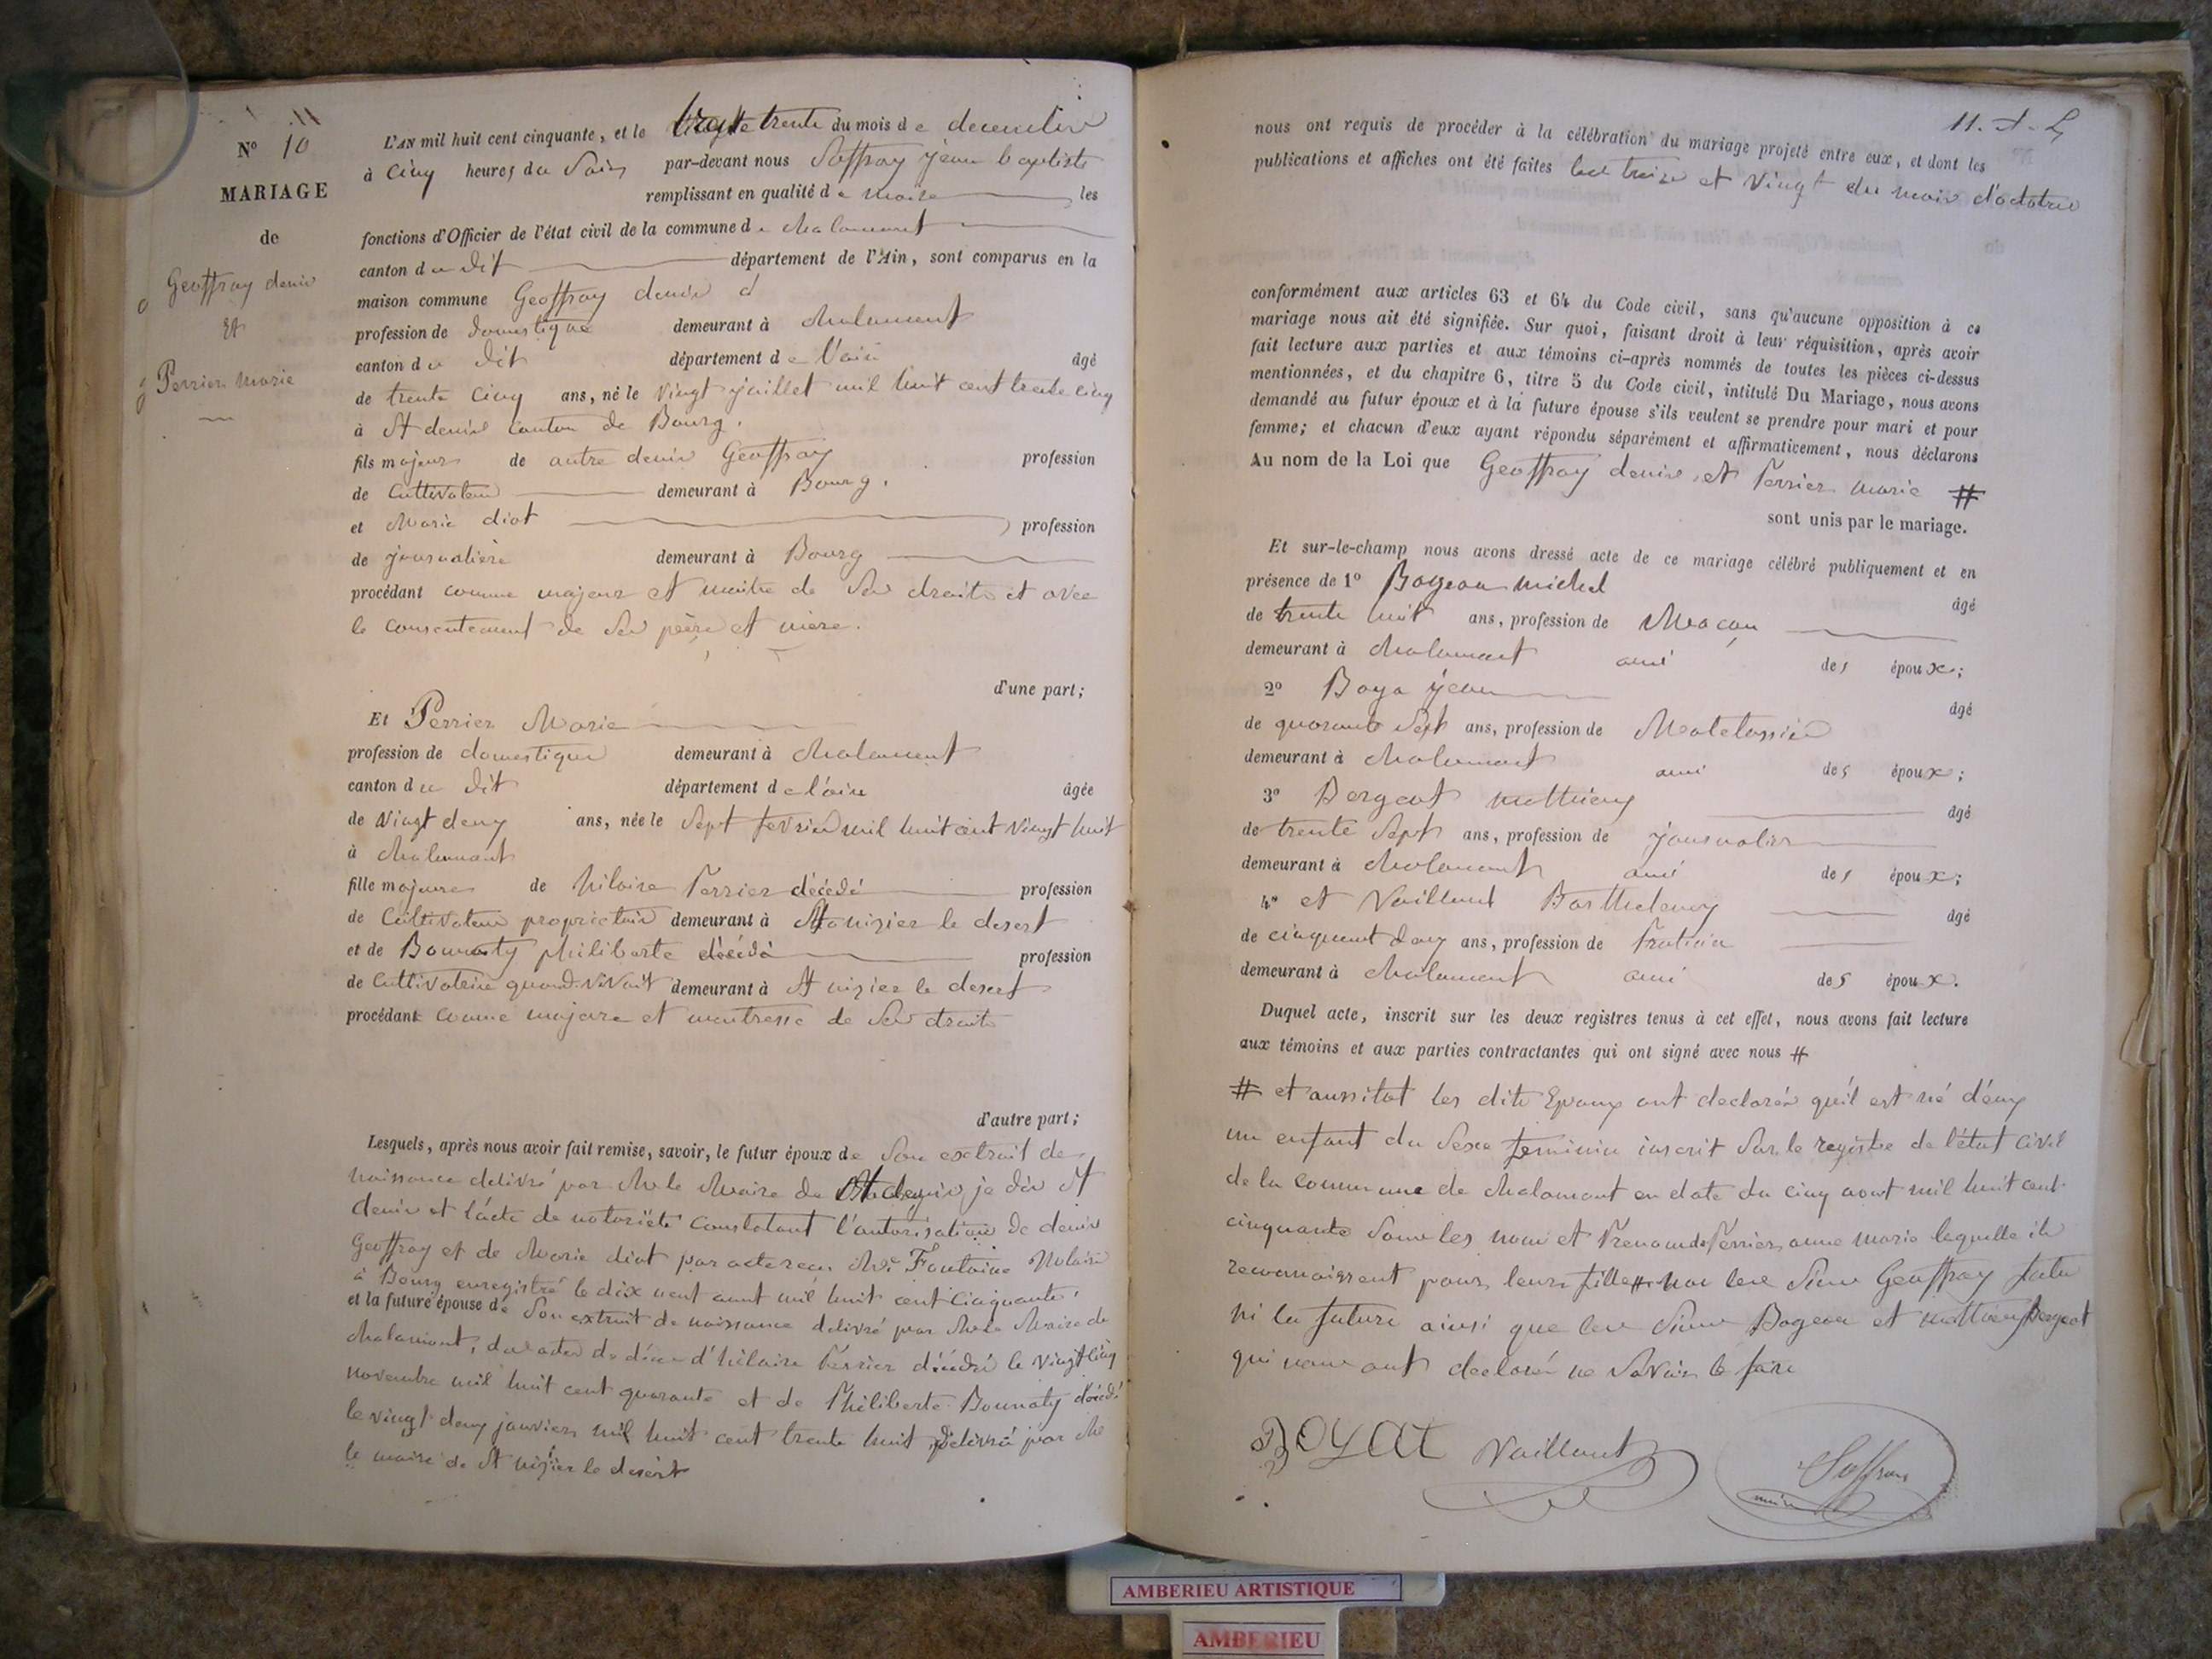 N° 10
MARIAGE
de
Geoffray denis
et
Perrier marie
L'AN mil huit cent cinquante, et le trente du mois de decembre
à cinq heures du Soir par-devant nous Soffray jean baptiste
remplissant en qualité de maire les
fonctions d'Officier de l'état civil de la commune de chalamont
canton du dit département de l'Ain, sont comparus en la
maison commune Geoffray denis
profession de domestique demeurant à chalamont
canton du dit département de l'ain âgé
de trente cinq ans, né le vingt juillet mil huit cent trente cinq
à St denis canton de Bourg.
fils majeur de autre denis Geoffray profession
de cultivateur demeurant à Bourg.
et Marie diot profession
de journalière demeurant à Bourg
procédant comme majeur et maitre de Ses droits et avec
le consentement de Ses père et mère.
d'une part;
Et Perrier Marie
profession de domestique demeurant à chalamont
canton du dit département de l'ain âgée
de vingt deux ans, née le Sept fevrier mil huit cent vingt huit
à chalamont
fille majeure de hilaire Perrier décédé profession
de Cultivateur proprietaire demeurant à St nizier le desert
et de Bounaty philiberte décédé profession
de cultivatrice quand vivait demeurant à St nizier le desert
procédant comme majeure et maitresse de Ses droits
d'autre part;
Lesquels, après nous avoir fait remise, savoir, le futur époux de Son extrait de
naissance delivré par Mr le Maire de je dis St
denis et l'acte de notoriété constatant l'autorisation de denis
Geoffray et de Marie diot par acte reçu Me Fontaine Notaire
à Bourg enregistré le dix neuf aout mil huit cent cinquante.
et la future épouse de Son extrait de naissance delivré par Mr le Maire de
chalamont, des actes de décès d'hilaire Perrier décédé le vingt cinq
novembre mil huit cent quarante et de Philiberte Bounaty décédé
le vingt deux janvier mil huit cent trente huit delivré par Mr
le maire de St nizier le desert
11. A. L
nous ont requis de procéder à la célébration du mariage projeté entre eux, et dont les
publications et affiches ont été faites les treize et vingt du mois d'octobre
conformément aux articles 63 et 64 du Code civil, sans qu'aucune opposition à ce
mariage nous ait été signifiée. Sur quoi, faisant droit à leur réquisition, après avoir
fait lecture aux parties et aux témoins ci-après nommés de toutes les pièces ci-dessus
mentionnées, et du chapitre 6, titre 5 du Code civil, intitulé Du Mariage, nous avons
demandé au futur époux et à la future épouse s'ils veulent se prendre pour mari et pour
femme; et chacun d'eux ayant répondu séparément et affirmativement, nous déclarons
Au nom de la Loi que Geoffray denis et Perrier marie #
sont unis par le mariage.
Et sur-le-champ nous avons dressé acte de ce mariage célébré publiquement et en
présence de 1° Bogeon michel âgé
de trente huit ans, profession de Maçon
demeurant à chalamont ami des époux;
2° Boya jean âgé
de quarante Sept ans, profession de Matelassier
demeurant à chalamont ami des époux;
3° Bergeot mathieu âgé
de trente Sept ans, profession de journalier
demeurant à chalamont ami des époux;
4° et Vaillant Barthelemy âgé
de cinquant deux ans, profession de
demeurant à chalamont ami des époux.
Duquel acte, inscrit sur les deux registres tenus à cet effet, nous avons fait lecture
aux témoins et aux parties contractantes qui ont signé avec nous #
# et aussitot les dits Epoux ont declarés qu'il est né d'eux
un enfant du Sexe feminin inscrit Sur le registre de l'état civil
de la commune de chalamont en date du cinq aout mil huit cent
cinquante Sous les nom et Prenom de Perrier anne marie laquelle ils
reconnaissent pour leur fille # non les Sieur Geoffray futur
ni la future ainsi que les Sieur Bogeon et mathieu Bergeot
qui nous ont declaré ne Savoir le faire
BOYAT Vaillant Soffray
maire
AMBERIEU ARTISTIQUE
AMBERIEU